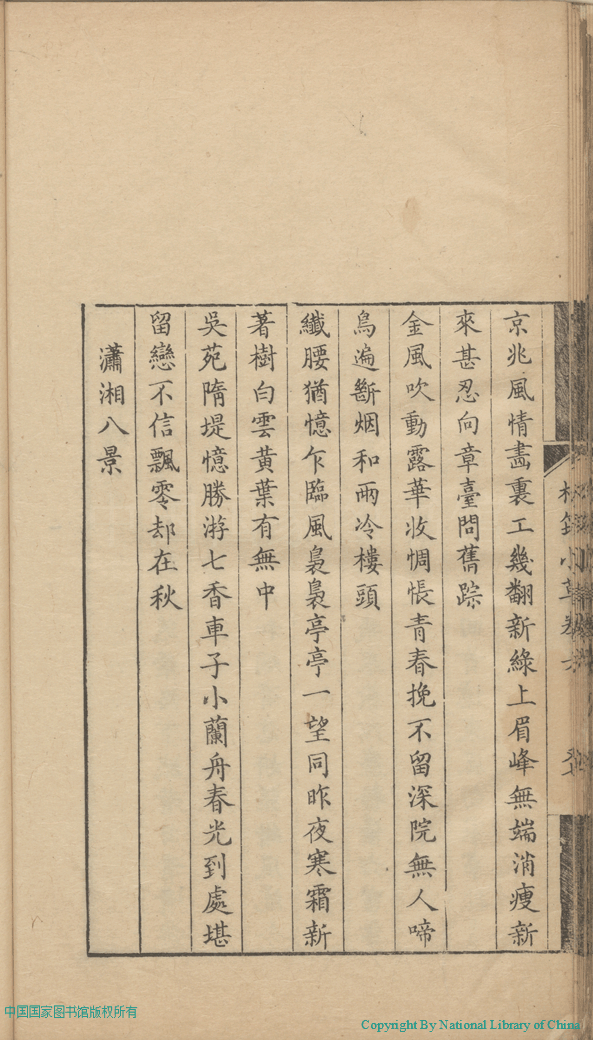 京兆風情畵裏工幾翻新綠上眉峰無端消瘦新
來甚忍向章臺問舊踪
金風吹動露華收惆悵青春挽不留深院無人啼
烏遍斷烟和雨冷樓頭
纖腰猶憶乍臨風裊裊亭亭一望同昨夜寒霜新
著樹白雲黃葉有無中
吳苑隋堤憶勝游七香車子小蘭舟春光到處堪
留戀不信飄零却在秋
瀟湘八景
中国国家图书馆版权所有
Copyright By National Library of China